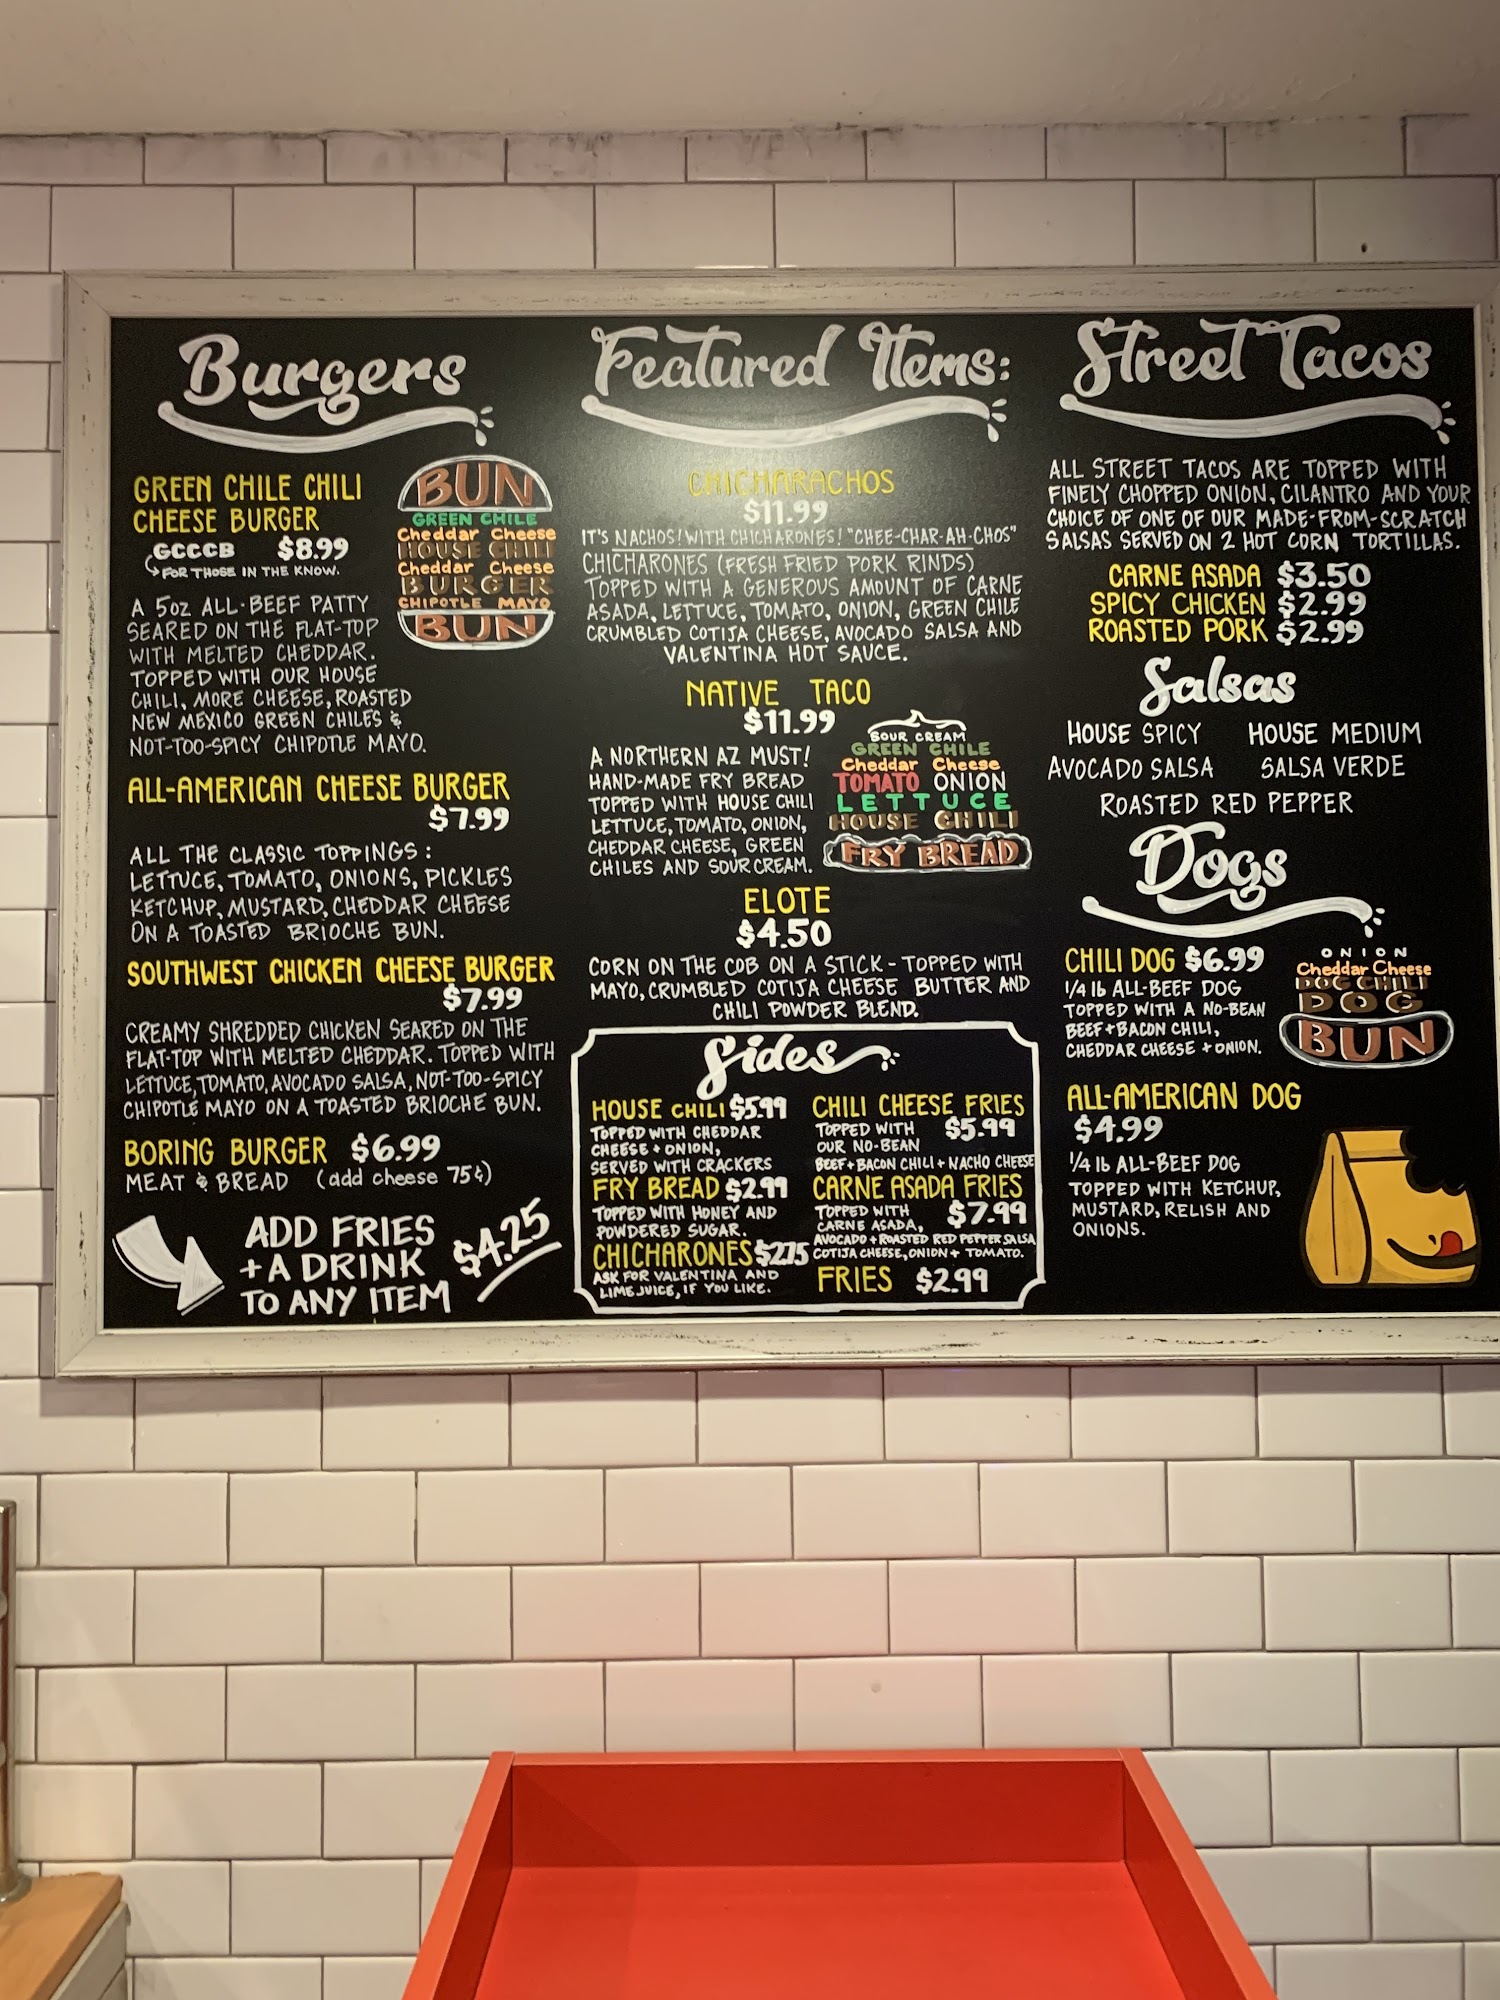 Burgers
GREEN CHILE CHILI
CHEESE BURGER
GCCCB $8.99
FOR THOSE IN THE KNOW.
A 5oz ALL-BEEF PATTY
SEARED ON THE FLAT-TOP
WITH MELTED CHEDDAR.
TOPPED WITH OUR HOUSE
CHILI, MORE CHEESE, ROASTED
NEW MEXICO GREEN CHILES &
NOT-TOO-SPICY CHIPOTLE MAYO.
BUN
GREEN CHILE
Cheddar Cheese
HOUSE CHILI
Cheddar Cheese
BURGER
CHIPOTLE MAYO
BUN
ALL-AMERICAN CHEESE BURGER
$7.99
ALL THE CLASSIC TOPPINGS:
LETTUCE, TOMATO, ONIONS, PICKLES
KETCHUP, MUSTARD, CHEDDAR CHEESE
ON A TOASTED BRIOCHE BUN.
SOUTHWEST CHICKEN CHEESE BURGER
$7.99
CREAMY SHREDDED CHICKEN SEARED ON THE
FLAT-TOP WITH MELTED CHEDDAR. TOPPED WITH
LETTUCE, TOMATO, AVOCADO SALSA, NOT-TOO-SPICY
CHIPOTLE MAYO ON A TOASTED BRIOCHE BUN.
BORING BURGER $6.99
MEAT & BREAD (add cheese 75¢)
ADD FRIES
+ A DRINK
TO ANY ITEM
$4.25
Featured Items:
CHICHARACHOS
$11.99
IT'S NACHOS! WITH CHICHARONES! "CHEE-CHAR-AH-CHOS"
CHICHARONES (FRESH FRIED PORK RINDS)
TOPPED WITH A GENEROUS AMOUNT OF CARNE
ASADA, LETTUCE, TOMATO, ONION, GREEN CHILE
CRUMBLED COTIJA CHEESE, AVOCADO SALSA AND
VALENTINA HOT SAUCE.
NATIVE TACO
$11.99
A NORTHERN AZ MUST!
HAND-MADE FRY BREAD
TOPPED WITH HOUSE CHILI
LETTUCE, TOMATO, ONION,
CHEDDAR CHEESE, GREEN
CHILES AND SOUR CREAM.
SOUR CREAM
GREEN CHILE
Cheddar Cheese
TOMATO ONION
LETTUCE
HOUSE CHILI
FRY BREAD
ELOTE
$4.50
CORN ON THE COB ON A STICK - TOPPED WITH
MAYO, CRUMBLED COTIJA CHEESE BUTTER AND
CHILI POWDER BLEND.
Sides
HOUSE CHILI $5.99
TOPPED WITH CHEDDAR
CHEESE + ONION,
SERVED WITH CRACKERS
FRY BREAD $2.99
TOPPED WITH HONEY AND
POWDERED SUGAR.
CHICHARONES $2.75
ASK FOR VALENTINA AND
LIME JUICE, IF YOU LIKE.
CHILI CHEESE FRIES
TOPPED WITH $5.99
OUR NO-BEAN
BEEF + BACON CHILI + NACHO CHEESE
CARNE ASADA FRIES
TOPPED WITH $7.99
CARNE ASADA,
AVOCADO + ROASTED RED PEPPER SALSA
COTIJA CHEESE, ONION + TOMATO.
FRIES $2.99
Street Tacos
ALL STREET TACOS ARE TOPPED WITH
FINELY CHOPPED ONION, CILANTRO AND YOUR
CHOICE OF ONE OF OUR MADE-FROM-SCRATCH
SALSAS SERVED ON 2 HOT CORN TORTILLAS.
CARNE ASADA $3.50
SPICY CHICKEN $2.99
ROASTED PORK $2.99
Salsas
HOUSE SPICY HOUSE MEDIUM
AVOCADO SALSA SALSA VERDE
ROASTED RED PEPPER
Dogs
CHILI DOG $6.99
1/4 lb ALL-BEEF DOG
TOPPED WITH A NO-BEAN
BEEF + BACON CHILI,
CHEDDAR CHEESE + ONION.
ONION
Cheddar Cheese
DOG CHILI
DOG
BUN
ALL-AMERICAN DOG
$4.99
1/4 lb ALL-BEEF DOG
TOPPED WITH KETCHUP,
MUSTARD, RELISH AND
ONIONS.